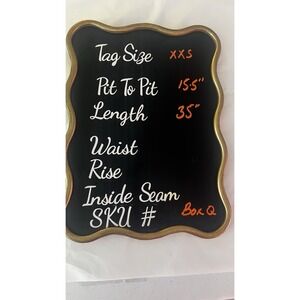 Tag Size XXS
Pit To Pit 15.5"
Length 35"
Waist
Rise
Inside Seam
SKU # Box Q